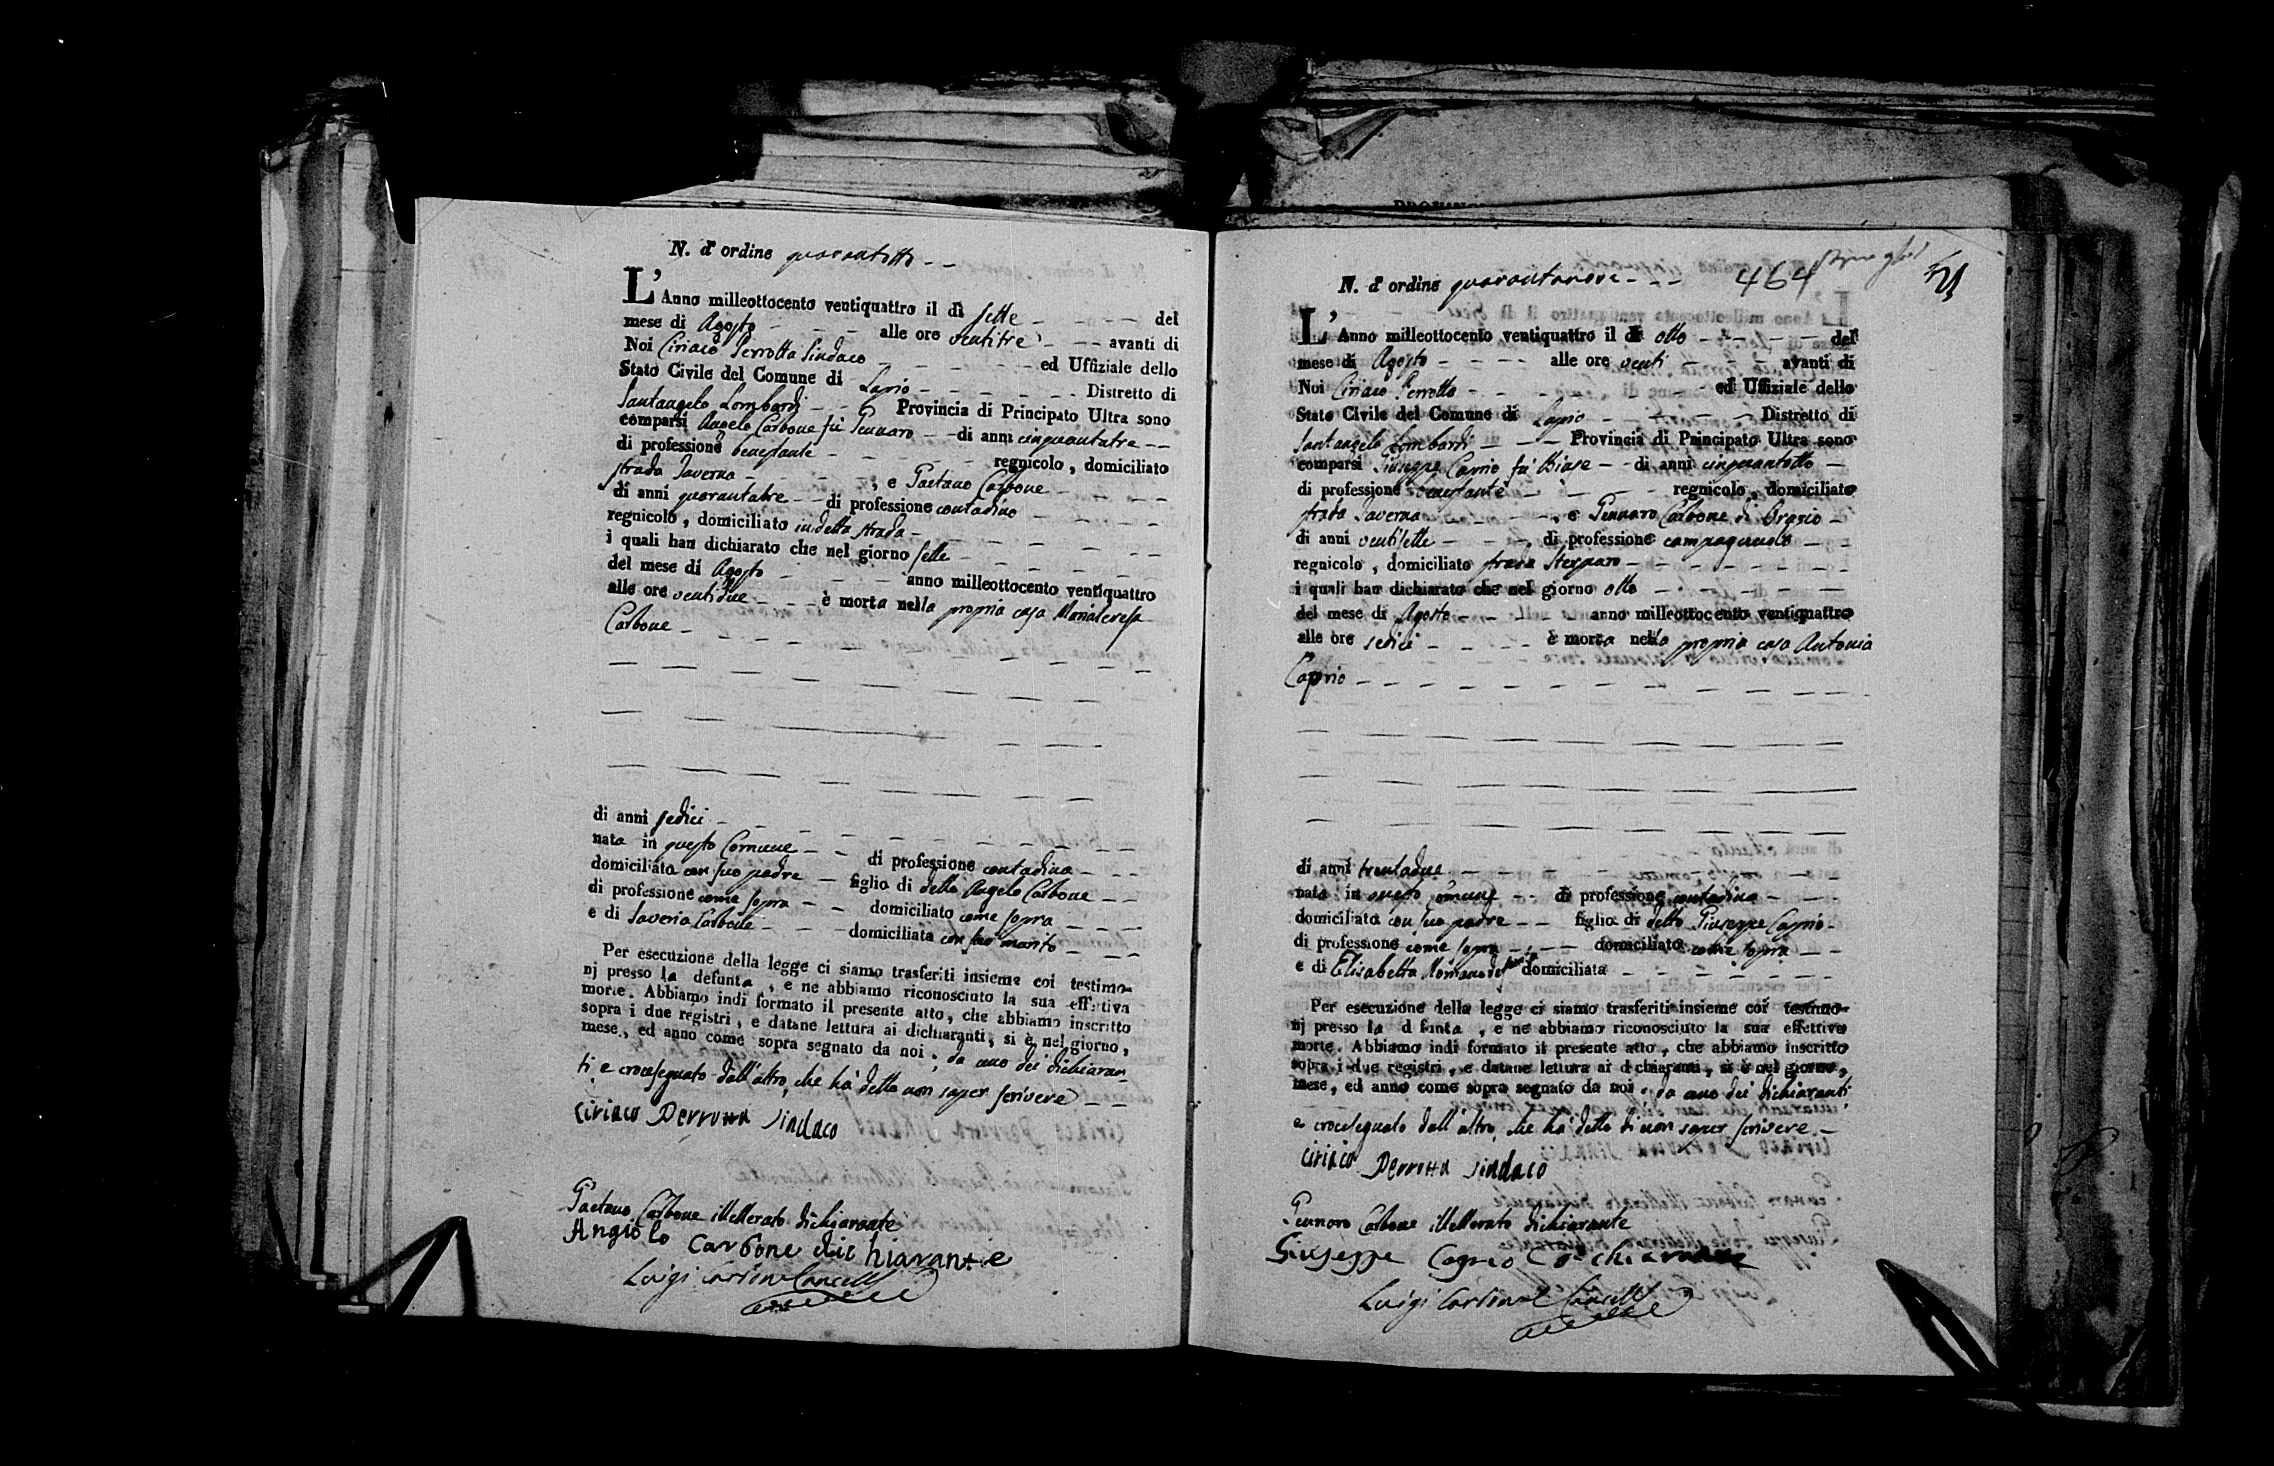 N. d'ordine quarantotto
L'Anno milleottocento ventiquattro il dì sette del
mese di Agosto alle ore ventitre avanti di
Noi Ciriaco Perrotta Sindaco ed Uffiziale dello
Stato Civile del Comune di Lapio Distretto di
Santangelo Lombardi Provincia di Principato Ultra sono
comparsi Angelo Carbone fu Gennaro di anni cinquantatre
di professione benestante regnicolo, domiciliato
strada Taverna, e Gaetano Carbone
di anni quarantatre di professione contadino
regnicolo, domiciliato in detta strada
i quali han dichiarato che nel giorno sette
del mese di Agosto anno milleottocento ventiquattro
alle ore ventidue è morta nella propria casa Mariateresa
Carbone
di anni sedici
nata in questo Comune di professione contadina
domiciliata con suo padre figlia di detto Angelo Carbone
di professione come sopra domiciliato come sopra
e di Saveria Carbone domiciliata con suo marito
Per esecuzione della legge ci siamo trasferiti insieme coi testimo-
nj presso la defunta, e ne abbiamo riconosciuto la sua effettiva
morte. Abbiamo indi formato il presente atto, che abbiamo inscritto
sopra i due registri, e datane lettura ai dichiaranti, si è nel giorno,
mese, ed anno come sopra segnato da noi, da uno dei dichiaran-
ti, e crocesegnato dall'altro, che ha detto non saper scrivere
Ciriaco Perrotta Sindaco
Gaetano Carbone illetterato dichiarante
Angiolo Carbone dichiarante
Luigi Cancell
N. d'ordine quarantanove 464
L'Anno milleottocento ventiquattro il dì otto del
mese di Agosto alle ore venti avanti di
Noi Ciriaco Perrotta ed Uffiziale dello
Stato Civile del Comune di Lapio Distretto di
Santangelo Lombardi Provincia di Principato Ultra sono
comparsi Giuseppe Caprio fu Biase di anni cinquantotto
di professione benestante regnicolo, domiciliato
strada Taverna, e Gennaro Carbone di Orazio
di anni ventisette di professione campagnuolo
regnicolo, domiciliato strada
i quali han dichiarato che nel giorno otto
del mese di Agosto anno milleottocento ventiquattro
alle ore sedici è morta nella propria casa Antonia
Caprio
di anni trentadue
nata in questo Comune di professione contadina
domiciliata con suo padre figlia di detto Giuseppe Caprio
di professione come sopra domiciliato come sopra
e di Elisabetta domiciliata
Per esecuzione della legge ci siamo trasferiti insieme coi testimo-
nj presso la defunta, e ne abbiamo riconosciuto la sua effettiva
morte. Abbiamo indi formato il presente atto, che abbiamo inscritto
sopra i due registri, e datane lettura ai dichiaranti, si è nel giorno,
mese, ed anno come sopra segnato da noi, da uno dei dichiaranti
e crocesegnato dall'altro, che ha detto di non saper scrivere
Ciriaco Perrotta Sindaco
Gennaro Carbone illetterato dichiarante
Giuseppe Caprio
Luigi Cancell